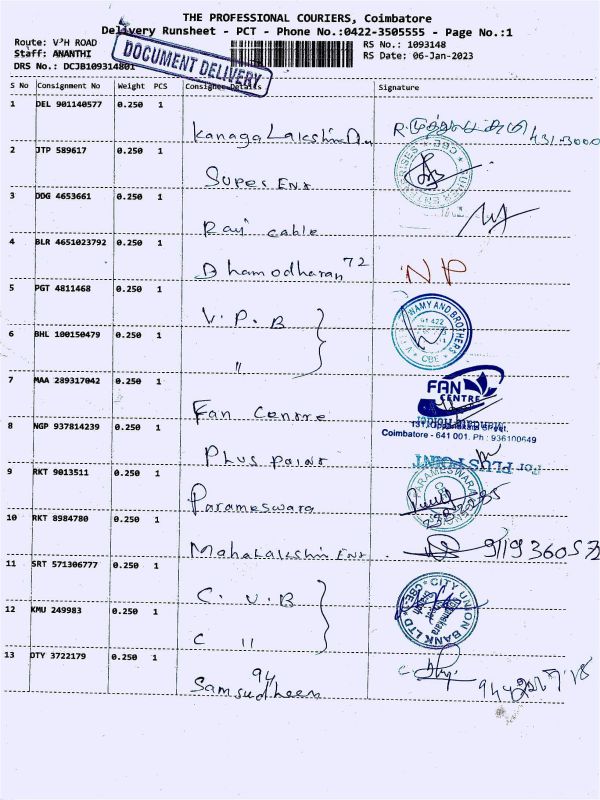 THE PROFESSIONAL COURIERS, Coimbatore
Delivery Runsheet - PCT - Phone No.:0422-3505555 - Page No.:1
Route: V*H ROAD
Staff: ANANTHI
DRS No.: DCJB109314801
DOCUMENT DELIVERY
RS No.: 1093148
RS Date: 06-Jan-2023
S No Consignment No Weight PCS Consignee Details Signature
1 DEL 901140577 0.250 1
Kanaga Lakshmi
2 JTP 589617 0.250 1
Super Ent
3 DDG 4653661 0.250 1
Raj cable
4 BLR 4651023792 0.250 1
Dhamodharan 72 NP
5 PGT 4811468 0.250 1
V. P. B
6 BHL 100150479 0.250 1
"
7 MAA 289317042 0.250 1
Fan Centre
FAN
CENTRE
Coimbatore - 641 001. Ph : 936100649
8 NGP 937814239 0.250 1
Plus point
For PLUS POINT
9 RKT 9013511 0.250 1
Parameswara
PARAMESWARA
10 RKT 8984780 0.250 1
Mahalakshmi Ent
11 SRT 571306777 0.250 1
C. U. B
CITY UNION BANK LTD
CBE
12 KMU 249983 0.250 1
C "
13 OTY 3722179 0.250 1
94
Samsudheen